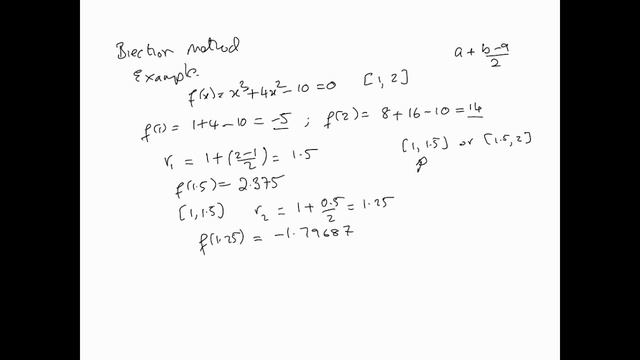 Bisection method
a + b-a/2
Example.
f(x) = x³ + 4x² - 10 = 0 [1, 2]
f(1) = 1 + 4 - 10 = -5 ; f(2) = 8 + 16 - 10 = 14
r₁ = 1 + (2-1/2) = 1.5
[1, 1.5] or [1.5, 2]
f(1.5) = 2.375
[1, 1.5) r₂ = 1 + 0.5/2 = 1.25
f(1.25) = -1.79687